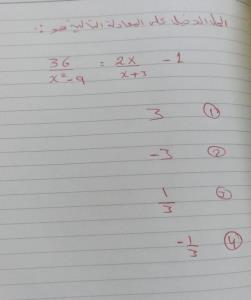 الحل الدخيل على المعادلة التالية هو :
36/(x²-9) = 2x/(x+3) - 1
3 ①
-3 ②
1/3 ③
-1/3 ④